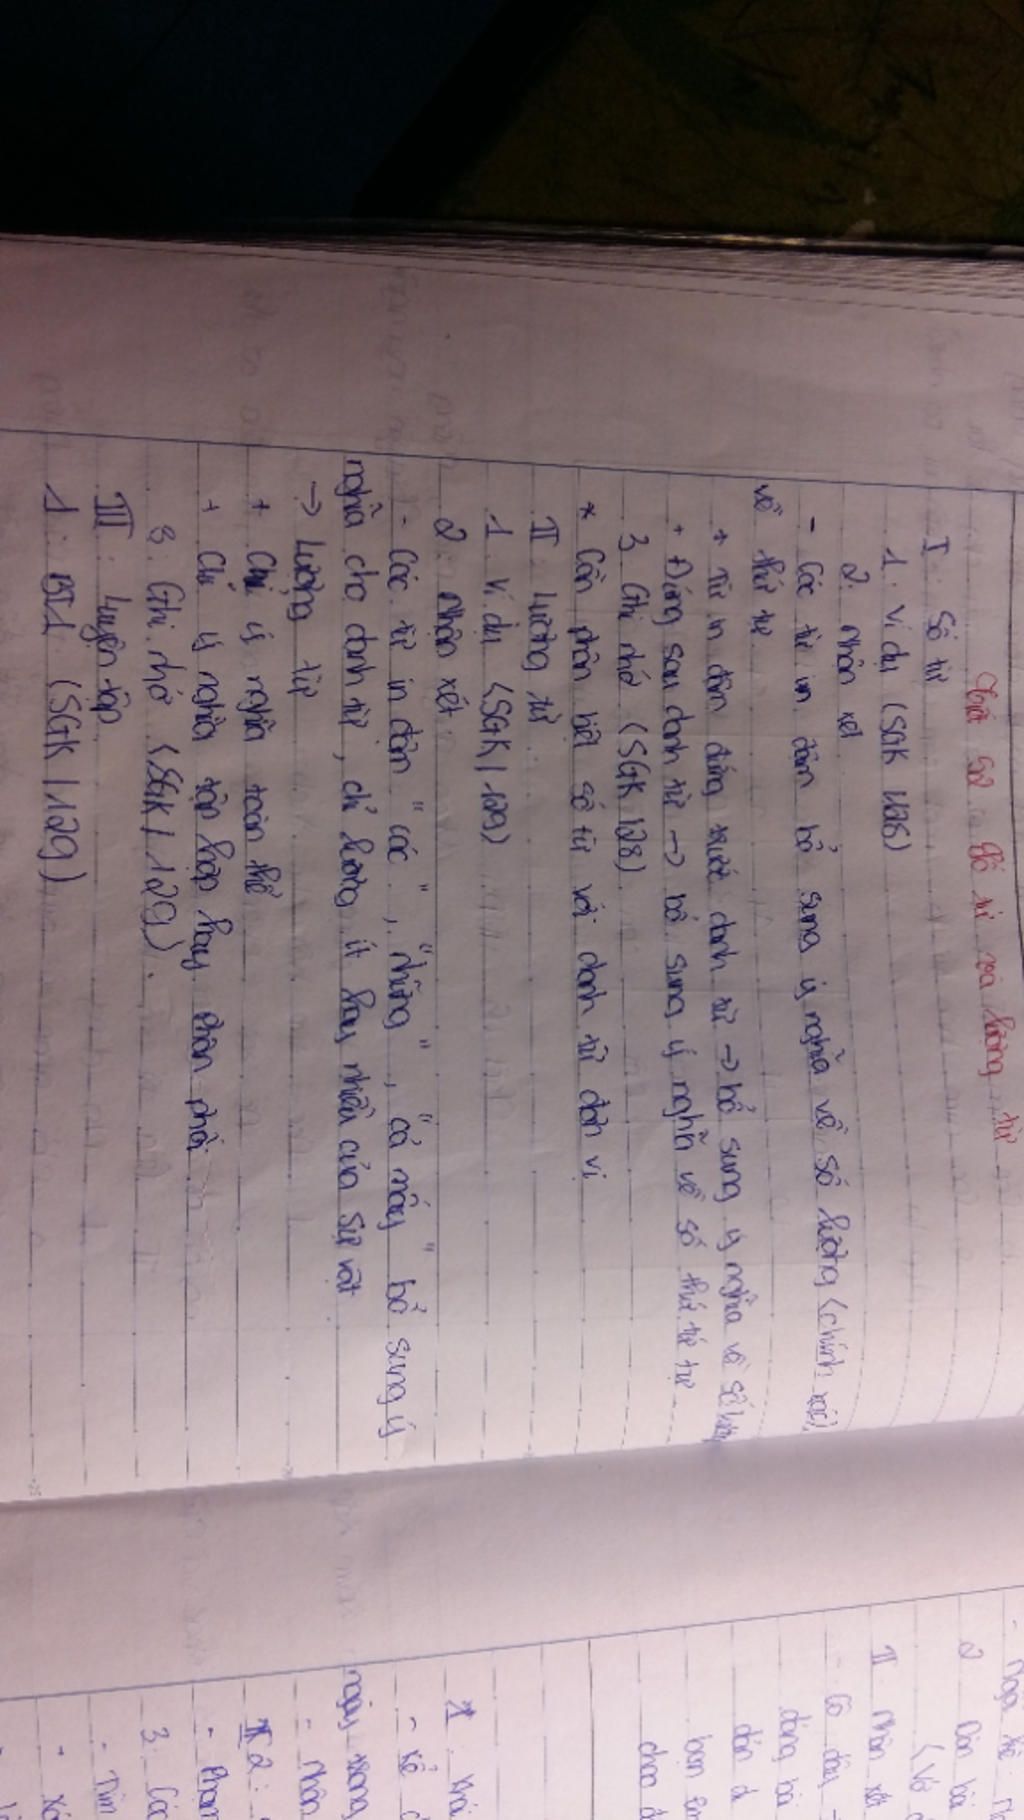 Tiết 52 Số từ và lượng từ
I: Số từ
1: Ví dụ (SGK 128)
2: Nhận xét
- Các từ in đậm bổ sung ý nghĩa về số lượng (chính xác),
về thứ tự
+ Từ in đậm đứng trước danh từ → bổ sung ý nghĩa về số lượng
+ Đứng sau danh từ → bổ sung ý nghĩa về số thứ tứ tự
3. Ghi nhớ (SGK 128)
* Cần phân biệt số từ với danh từ đơn vị
II: Lượng từ
1. Ví dụ (SGK / 129)
2: Nhận xét
- Các từ in đậm "các", "những", "cả mấy" bổ sung ý
nghĩa cho danh từ, chỉ lượng ít hay nhiều của sự vật
→ Lượng từ
+ Chỉ ý nghĩa toàn thể
+ Chỉ ý nghĩa tập hợp hay phân phối
3. Ghi nhớ (SGK / 129).
III: Luyện tập
1: BT1 (SGK / 129)
2 Dàn bài
II Nhận xét
bạn
I Khái
- Kể
ngày trong
- Nhân
II 2:
- Phạm
3: Các
- Tìm